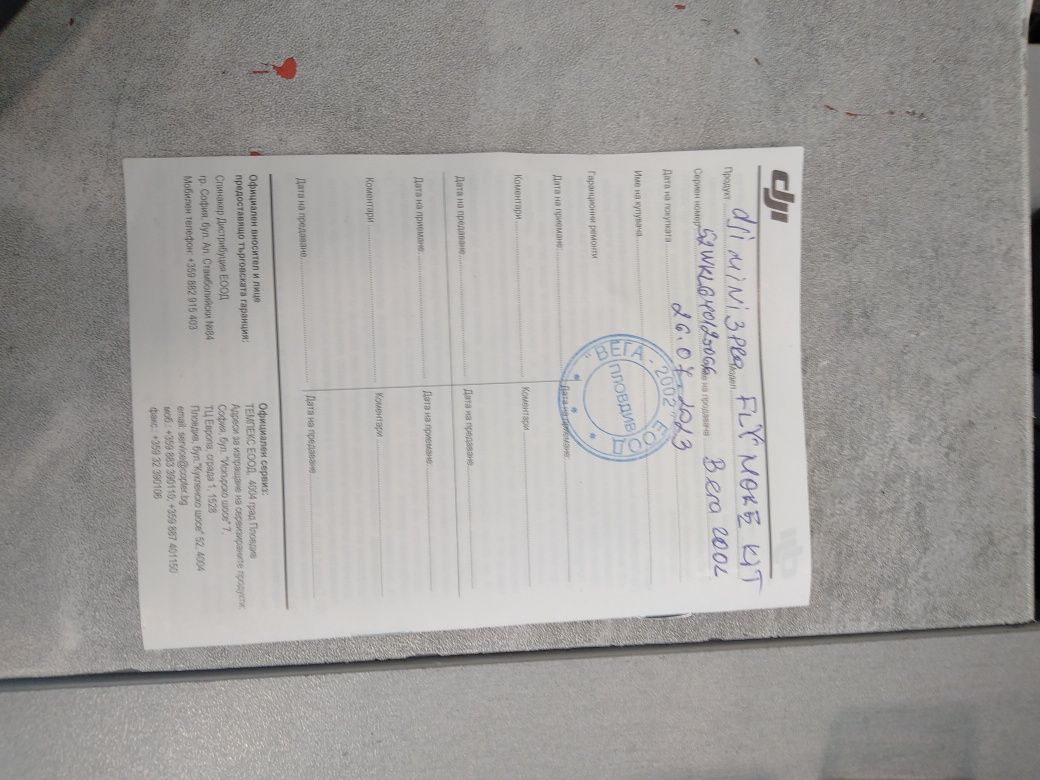 dji
Продукт dji MINI 3 PRO Модел FLY MORE KIT
Сериен номер Име на продавача Вега 2002
Дата на покупката 26.07.2023
Име на купувача
Гаранционни ремонти
Дата на приемане: Дата на приемане:
Коментари Коментари
Дата на предаване Дата на предаване
Дата на приемане: Дата на приемане:
Коментари Коментари
Дата на предаване Дата на предаване
"ВЕГА - 2002" ЕООД
ПЛОВДИВ
Официален вносител и лице
предоставящо търговската гаранция:
Спинакер Дистрибуция ЕООД
гр. София, бул. Ал. Стамболийски №84
Мобилен телефон: +359 882 915 403
Официален сервиз:
ТЕМПЕКС ЕООД, 4004 град Пловдив
Адреси за изпращане на сервизираните продукти:
София, бул. "Искърско шосе" 7,
ТЦ Европа, сграда 1, 1528
Пловдив, бул."Кукленско шосе" 52, 4004
email: service@copter.bg
моб.: +359 883 390110; +359 887 401150
факс: +359 32 390106